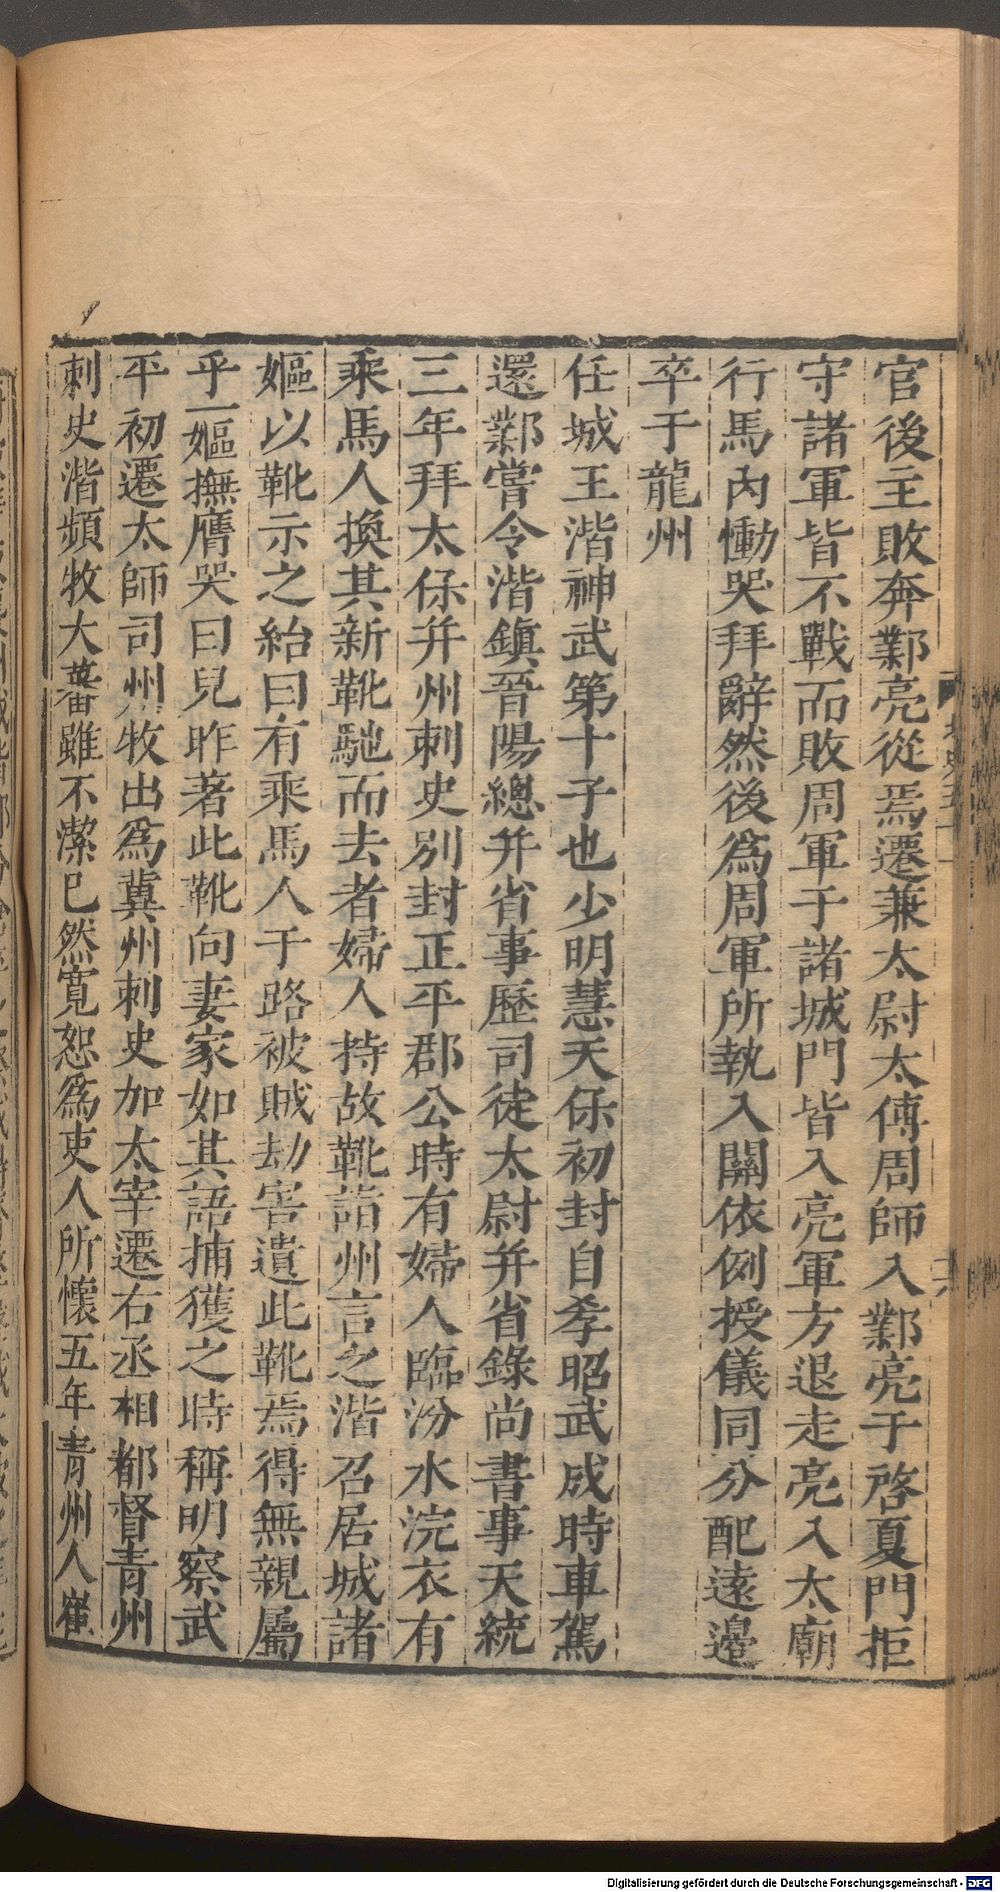 官後主敗奔鄴亮從焉遷兼太尉太傅周師入鄴亮于啓夏門拒
守諸軍皆不戰而敗周軍于諸城門皆入亮軍方退走亮入太廟
行馬內慟哭拜辭然後爲周軍所執入關依例授儀同分配遠邊
卒于龍州
任城王湝神武第十子也少明慧天保初封自孝昭武成時車駕
還鄴嘗令湝鎮晉陽總并省事歷司徒太尉并省錄尚書事天統
三年拜太保并州刺史別封正平郡公時有婦人臨汾水浣衣有
乘馬人換其新靴馳而去者婦人持故靴詣州言之湝召居城諸
嫗以靴示之紿曰有乘馬人于路被賊劫害遺此靴焉得無親屬
乎一嫗撫膺哭曰兒昨著此靴向妻家如其語捕獲之時稱明察武
平初遷太師司州牧出爲冀州刺史加太宰遷右丞相都督青州
刺史湝頻牧大藩雖不潔己然寬恕爲吏人所懷五年青州人崔
Digitalisierung gefördert durch die Deutsche Forschungsgemeinschaft - DFG